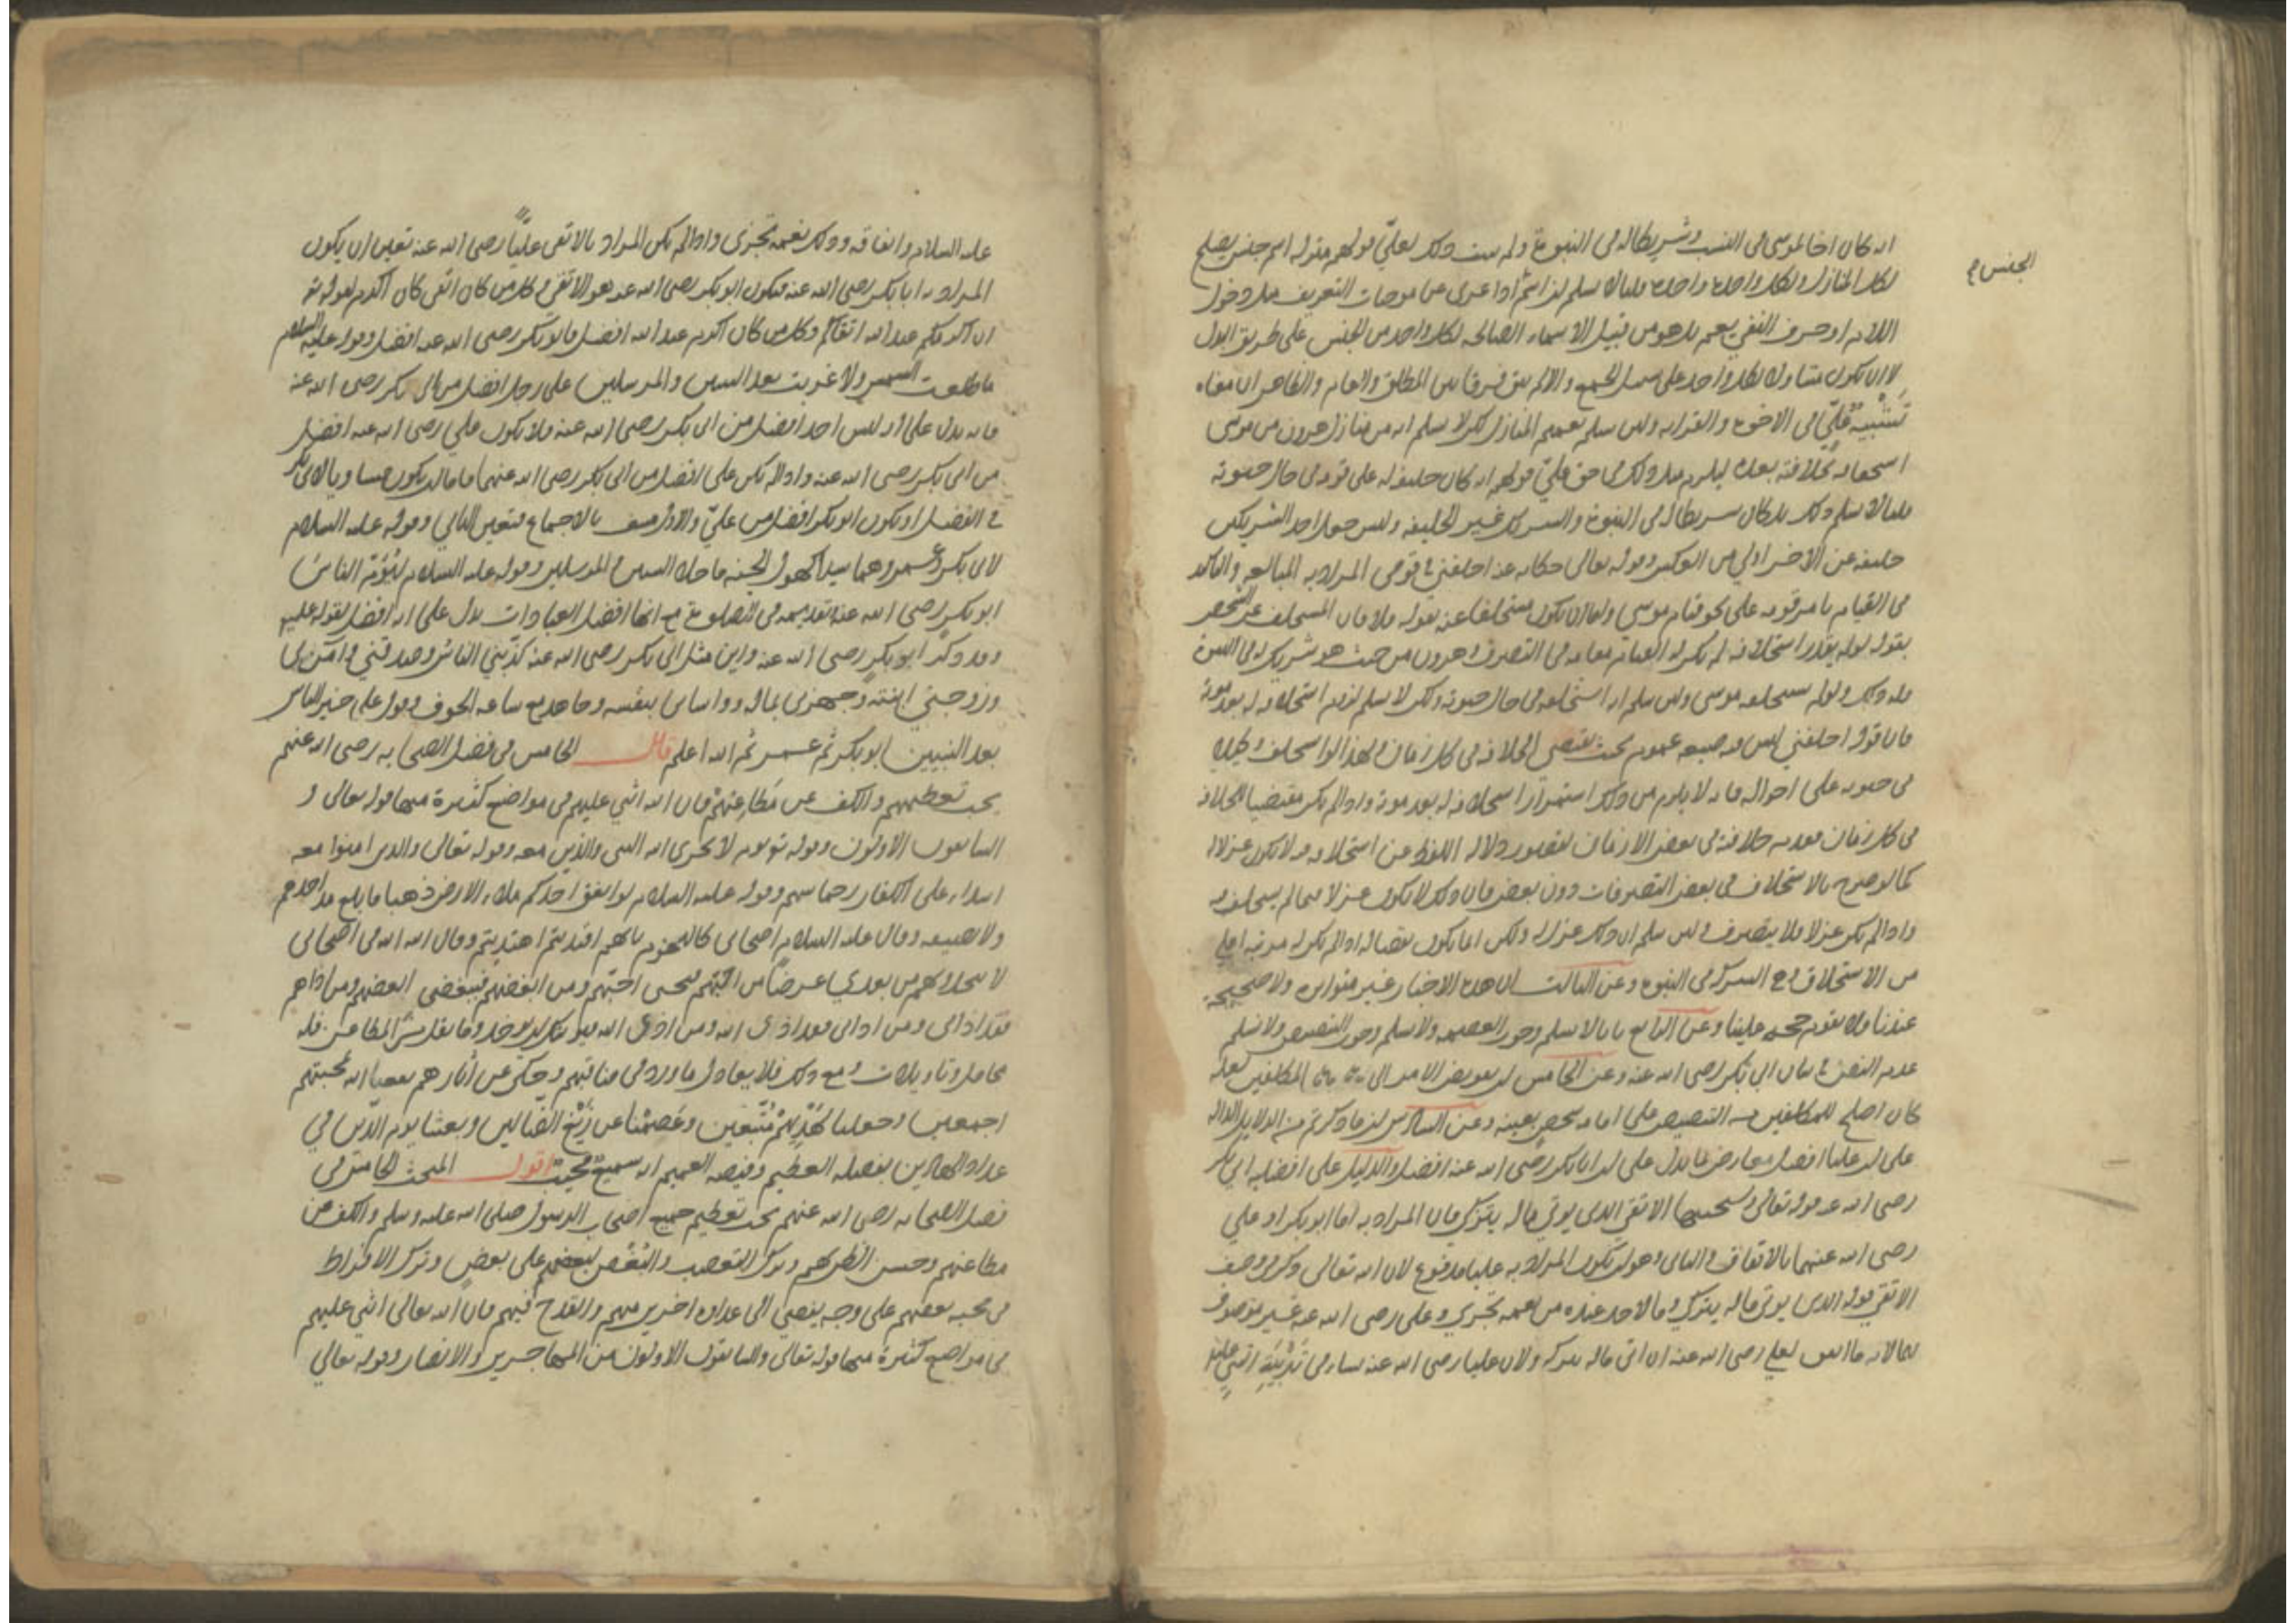 انه كان اخا لموسى في النسب وشريكا له في النبوة ولم يثبت ذلك لعلي قولهم منزلة اسم جنس يصلح
الجنس
لكل المنازل ولكل واحدة واحدة قلنا لا نسلم لان اسم اذا عري عن موجبات التعريف مثل دخول
اللام او حرف النفي يعم بل هو من قبيل الاسماء الصالحة لكل واحد من الجنس على طريق البدل
لا ان يكون متناولا لكل واحد على سبيل الجمع والا لم يبق فرق بين المطلق والعام والظاهر ان معناه
تشبيه علي في الاخوة والقرابة ولئن سلم تعميم المنازل لكن لا نسلم انه من منازل هرون من موسى
استحقاقه لخلافته بعده ليلزم مثل ذلك في حق علي قولهم انه كان خليفة له على قومه في حال حيوته
قلنا لا نسلم ذلك بل كان شريكا له في النبوة والشريك غير الخليفة وليس جعل احد الشريكين
خليفة عن الاخر اولى من العكس وقوله تعالى حكاية عنه اخلفني في قومي المراد به المبالغة والتاكيد
في القيام بامر قومه على نحو قيام موسى واما ان يكون مستخلفا عنه بقوله فلا فان المستخلف عن الشخص
بقوله لو لم يقدر استخلافه لم يكن له القيام مقامه في التصرف وهرون من حيث هو شريك له في النبوة
فله ذلك ولو لم يستخلفه موسى ولئن سلم انه استخلفه في حال حيوته ولكن لا نسلم لزوم استخلافه له بعد موته
فان قوله اخلفني ليس فيه صيغة عموم بحيث يقتضي الخلافة في كل زمان ولهذا لو استخلف وكيلا
في حيوته على امواله فانه لا يلزم من ذلك استمرار استخلافه له بعد موته واذا لم يكن مقتضيا للخلافة
في كل زمان فعدم خلافته في بعض الازمان لقصور دلالة اللفظ عن استخلافه فيه لا يكون عزلا له
كما لو صرح بالاستخلاف في بعض التصرفات دون بعض فان ذلك لا يكون عزلا فيما لم يستخلف فيه
واذا لم يكن عزلا فلا ينفر ولئن سلم ان ذلك عزل له ولكن انما يكون نقصا له اذا لم يكن له مرتبة اعلى
من الاستخلاف وهي الشركة في النبوة وعن الثالث ان هذه الاخبار غير متواترة ولا صحيحة
عندنا فلا تقوم حجة علينا وعن الرابع بانا لا نسلم وجوب العصمة ولا نسلم وجوب التنصيص ولا نسلم
عدم النص في شان ابي بكر رضي الله عنه وعن الخامس ان تفويض الامر الى المكلفين لعله
كان اصلح للمكلفين من التنصيص على امامة شخص بعينه وعن السادس ان ما ذكرتم من الدلايل الدالة
على ان عليا افضل معارض بما يدل على ان ابا بكر رضي الله عنه افضل والدليل على افضلية ابي بكر
رضي الله عنه قوله تعالى وسيجنبها الاتقى الذي يوتي ماله يتزكى فان المراد به اما ابو بكر او علي
رضي الله عنهما بالاتفاق والثاني وهو ان يكون المراد به عليا مدفوع لان الله تعالى ذكر في وصف
الاتقى قوله الذي يوتي ماله يتزكى وما لاحد عنده من نعمة تجزى وعلي رضي الله عنه غير موصوف
بهما لانه ما اتفق لعلي رضي الله عنه ان اتى ماله يتزكى ولان عليا رضي الله عنه نشاء في تربية النبي عليه
عليه السلام وانفاقه وذلك نعمة تجزى واذا لم يكن المراد بالاتقى عليا رضي الله عنه تعين ان يكون
المراد به ابا بكر رضي الله عنه فيكون ابو بكر رضي الله عنه هو الاتقى وكل من كان اتقى كان اكرم لقوله تع
ان اكرمكم عند الله اتقاكم وكل من كان اكرم عند الله افضل فابو بكر رضي الله عنه افضل وقوله عليه السلام
ما طلعت الشمس ولا غربت بعد النبيين والمرسلين على رجل افضل من ابي بكر رضي الله عنه
فانه يدل على انه ليس احد افضل من ابي بكر رضي الله عنه فلا يكون علي رضي الله عنه افضل
من ابي بكر رضي الله عنه واذا لم يكن علي افضل من ابي بكر رضي الله عنهما فاما ان يكون مساويا لابي بكر
في الفضل او يكون ابو بكر افضل من علي والاول منتف بالاجماع فتعين الثاني وقوله عليه السلام
لابي بكر وعمر وهما سيدا كهول الجنة ما خلا النبيين والمرسلين وقوله عليه السلام ليؤم الناس
ابو بكر رضي الله عنه تقديمه في الصلوة مع انها افضل العبادات يدل على انه افضل لقوله عليه
وقد ذكر ابو بكر رضي الله عنه واين مثل ابي بكر رضي الله عنه كذبني الناس وصدقني وآمن بي
وزوجني ابنته وجهزني بماله وواساني بنفسه وجاهد معي ساعة الخوف وقول علي خير الناس
بعد النبيين ابو بكر ثم عمر ثم الله اعلم قال الخامس في فضل الصحابة رضي الله عنهم
يجب تعظيمهم والكف عن مطاعنهم فان الله اثنى عليهم في مواضع كثيرة منها قوله تعالى و
السابقون الاولون وقوله تع يوم لا يخزي الله النبي والذين معه وقوله تعالى والذين امنوا معه
اشداء على الكفار رحماء بينهم وقوله عليه السلام لو انفق احدكم ملء الارض ذهبا ما بلغ مد احدهم
ولا نصيفه وقال عليه السلام اصحابي كالنجوم بايهم اقتديتم اهتديتم وقال الله الله في اصحابي
لا تتخذوهم من بعدي غرضا من احبهم فبحبي احبهم ومن ابغضهم فببغضي ابغضهم ومن اذاهم
فقد اذاني ومن اذاني فقد اذى الله ومن اذى الله فيوشك ان يوخذ وما نقل من المطاعن فله
محامل وتاويلات ومع ذلك فلا يعادل ما ورد في مناقبهم وحكي عن اثارهم نفعنا الله بمحبتهم
اجمعين وجعلنا لهديهم متبعين وعصمنا عن زيغ الضالين وبعثنا يوم الدين في
عداد الهادين بفضله العظيم وفيضه العميم انه سميع مجيب اقول المبحث الخامس في
فضل الصحابة رضي الله عنهم يجب تعظيم جميع اصحاب الرسول صلى الله عليه وسلم والكف عن
مطاعنهم وحسن الظن بهم وترك التعصب والبغض لبعضهم على بعض وترك الافراط
في محبة بعضهم على وجه يفضي الى عداوة اخرين منهم والقدح فيهم فان الله تعالى اثنى عليهم
في مواضع كثيرة منها قوله تعالى والسابقون الاولون من المهاجرين والانصار وقوله تعالى